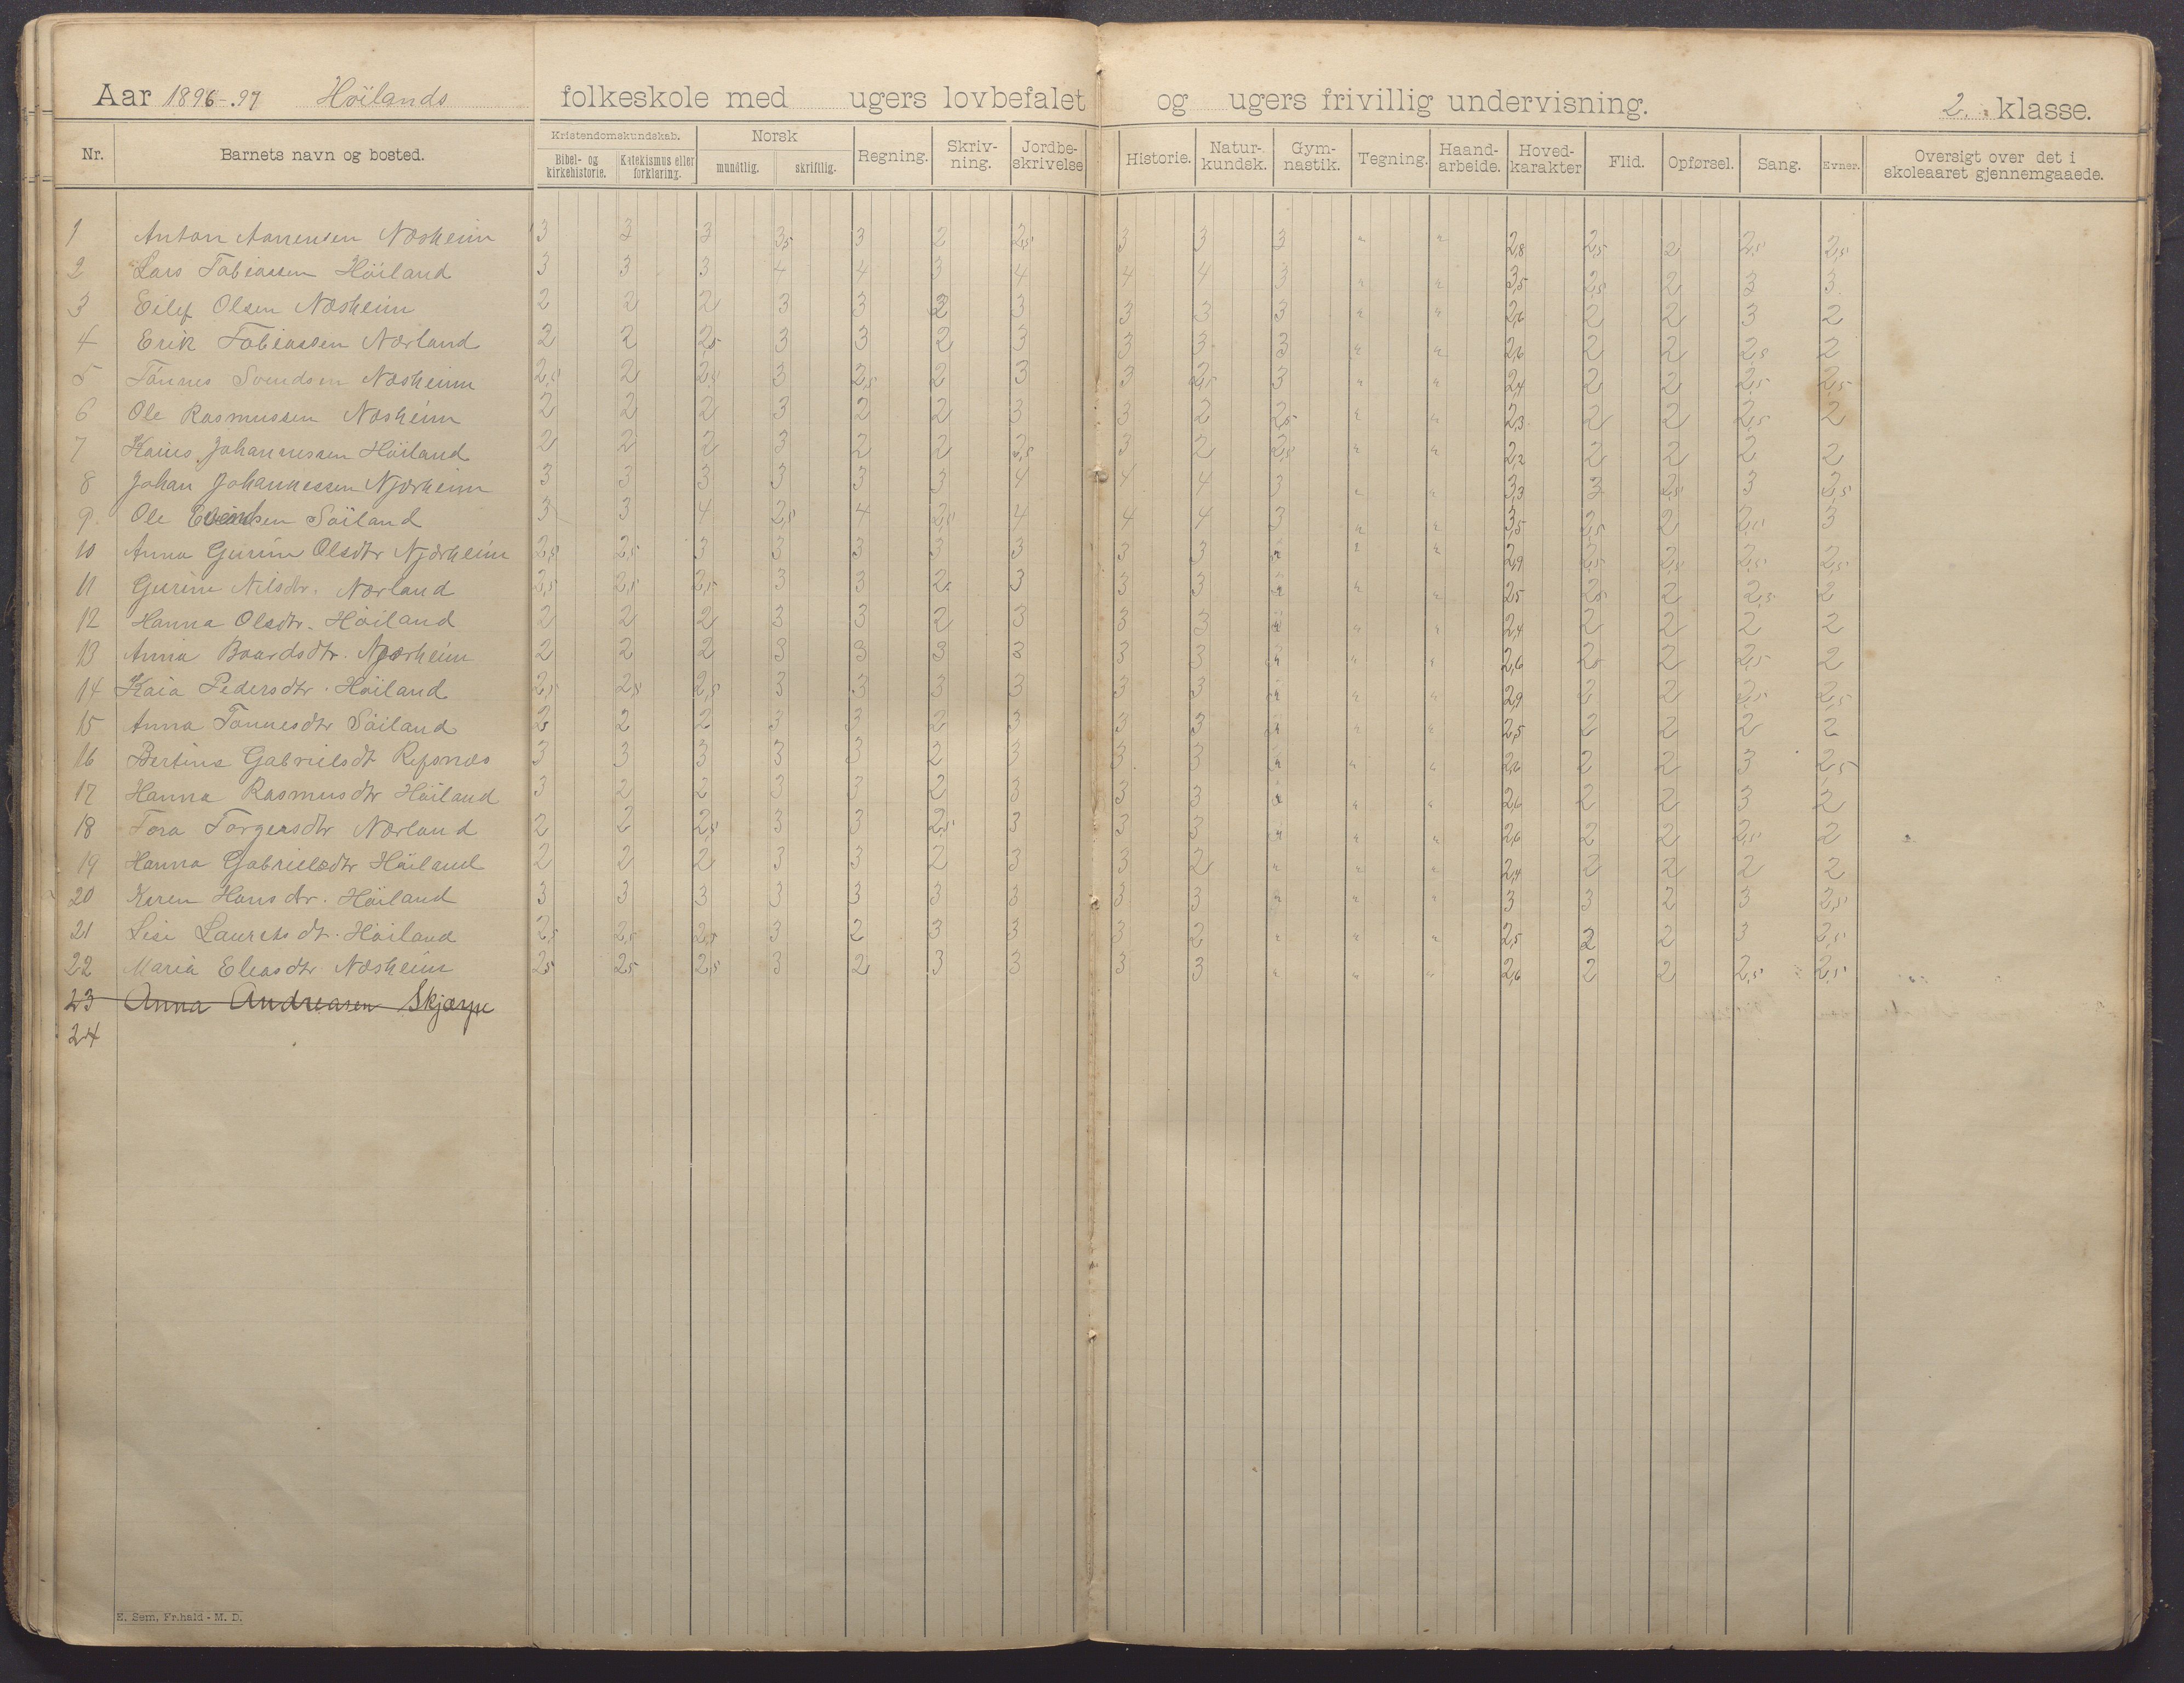 Aar 1896-.97 Höilands folkeskole med ugers lovbefalet og ugers frivillig undervisning. 2. klasse.
Nr. Barnets navn og bosted. Kristendomskundskab. Bibel- og kirkehistorie. Katekismus eller forklaring. Norsk mundtlig. skriftlig. Regning. Skriv-ning. Jordbe-skrivelse Historie. Natur-kundsk. Gym-nastik. Tegning. Haand-arbeide. Hoved-karakter Flid. Opførsel. Sang. Evner. Oversigt over det i skoleaaret gjennemgaaede.
1 Anton Aanensen Næsheim 3 3 3 3,5 3 2 2,5 3 3 3 " " 2,8 2,5 2 2,5 2,5
2 Lars Tobiassen Höiland 3 3 3 4 4 3 4 4 4 3 " " 3,5 2,5 2 3 3
3 Eilef Olsen Næsheim 2 2 2 3 3 2 3 3 3 3 " " 2,6 2 2 3 2
4 Erik Tobiassen Nærland 2 2 2,5 3 3 2 3 3 3 3 " " 2,6 2 2 2,5 2
5 Tönnes Svendsen Næsheim 2,5 2 2,5 3 2,5 2 3 3 2,5 3 " " 2,4 2 2 2,5 2,5
6 Ole Rasmussen Næsheim 2 2 2 3 2 2 3 3 2 2,5 " " 2,3 2 2 2,5 2
7 Kaius Johannessen Höiland 2 2 2 3 2 2 2,5 3 2 2,5 " " 2,2 2 2 2 2
8 Johan Johannessen Njærheim 3 3 3 3 3 3 4 4 4 3 " " 3,3 3 2,5 3 2,5
9 Ole Söiland 3 3 4 2,5 4 2,5 4 4 4 3 " " 3,5 2,5 2 2,5 3
10 Anna Gurine Olsdtr Njærheim 2,5 2,5 3 3 3 3 3 3 3 " " " 2,9 2,5 2,5 2,5 2,5
11 Gurine Nilsdtr. Nærland 2,5 2,5 2,5 3 3 2 3 3 3 " " " 2,5 2,5 2 2,5 2
12 Hanna Olsdtr. Höiland 2 2 2 3 3 2 3 3 3 " " " 2,4 2 2 2 2
13 Anna Baardsdtr. Njærheim 2 2 2 3 3 3 3 3 3 " " " 2,6 2 2 2,5 2
14 Kaia Pedersdtr. Höiland 2,5 2,5 2,5 3 3 3 3 3 3 " " " 2,9 2 2 2,5 2,5
15 Anna Tönnesdtr Söiland 2,5 2 2 3 3 2 3 3 3 " " " 2,5 2 2 2 2
16 Bertine Gabrielsdt Refsnæs 3 3 3 3 3 2 3 3 3 " " " 2,6 2 2 3 2,5
17 Hanna Rasmusdtr Höiland 3 2 2 3 3 2 3 3 3 " " " 2,6 2 2 3 2
18 Tora Torgersdtr Nærland 2 2 2,5 3 3 2,5 3 3 3 " " " 2,6 2 2 2,5 2
19 Hanna Gabrielsdtr Höiland 2 2 2 3 3 2 3 3 2 " " " 2,4 2 2 2 2
20 Karen Hansdtr. Höiland 3 3 3 3 3 3 3 3 3 " " " 3 3 2 3 2,5
21 Lise Lauritsdt. Höiland 2,5 2,5 2,5 3 2 3 3 3 2 " " " 2,5 2 2 3 2,5
22 Maria Eliasdtr. Næsheim 2,5 2,5 2,5 3 2 3 3 3 3 " " " 2,6 2 2 2,5 2,5
23 Anna Andreasen Skjærpe
24
E. Sem, Fr.hald - M. D.